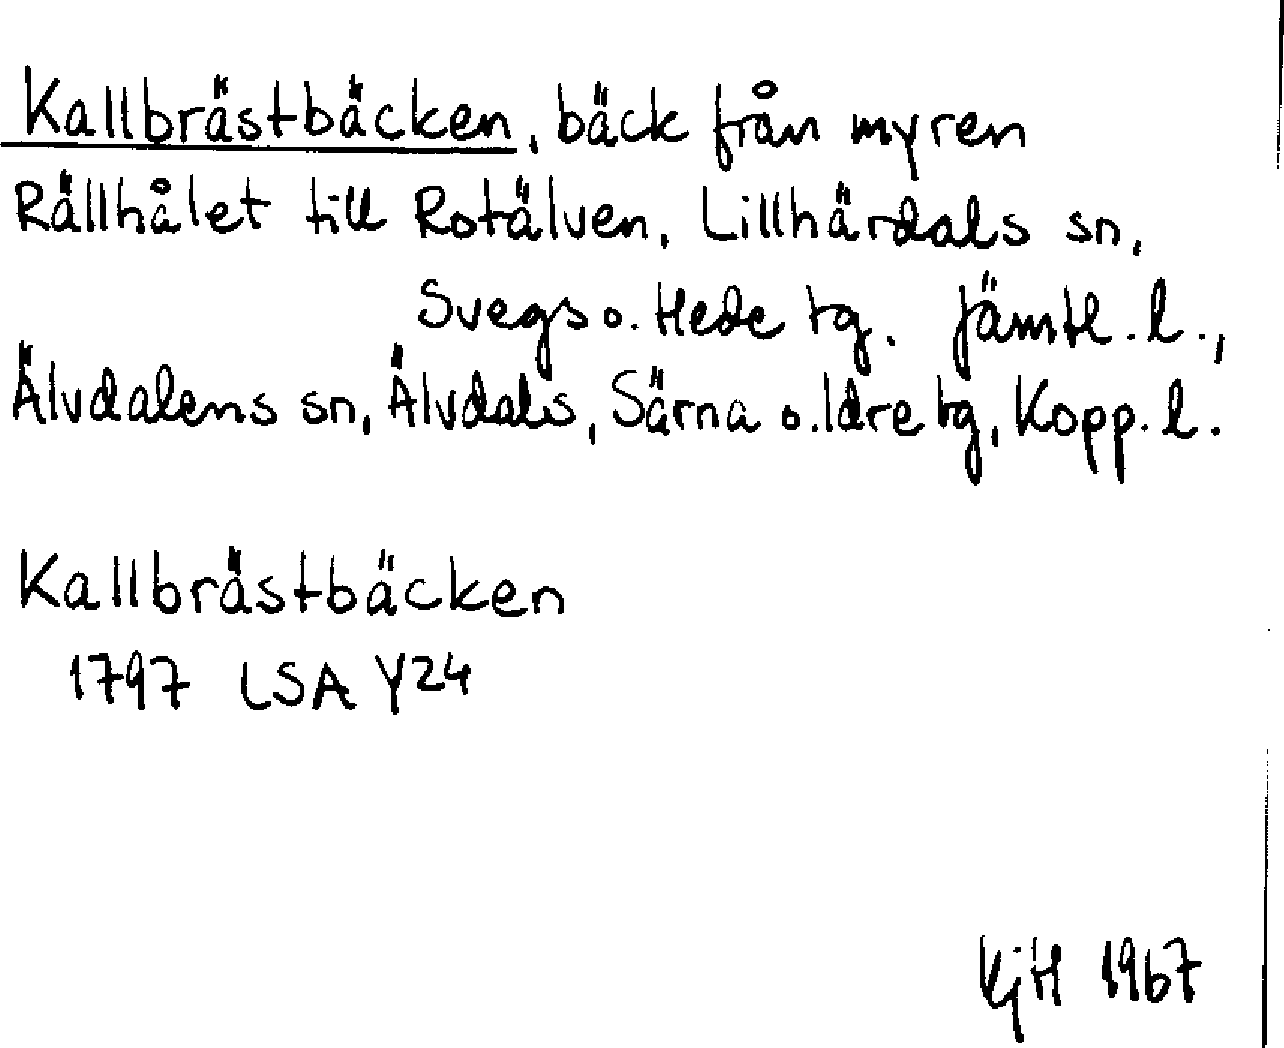 Kallbrästbäcken, bäck från myren
Rällhålet till Rotälven, Lillhärdals sn,
Svegs o. Hede tg. Jämtl. l.,
Älvdalens sn, Älvdals, Särna o. Idre tg, Kopp. l.
Kallbrästbäcken
1797 LSA Y24
KjH 1967